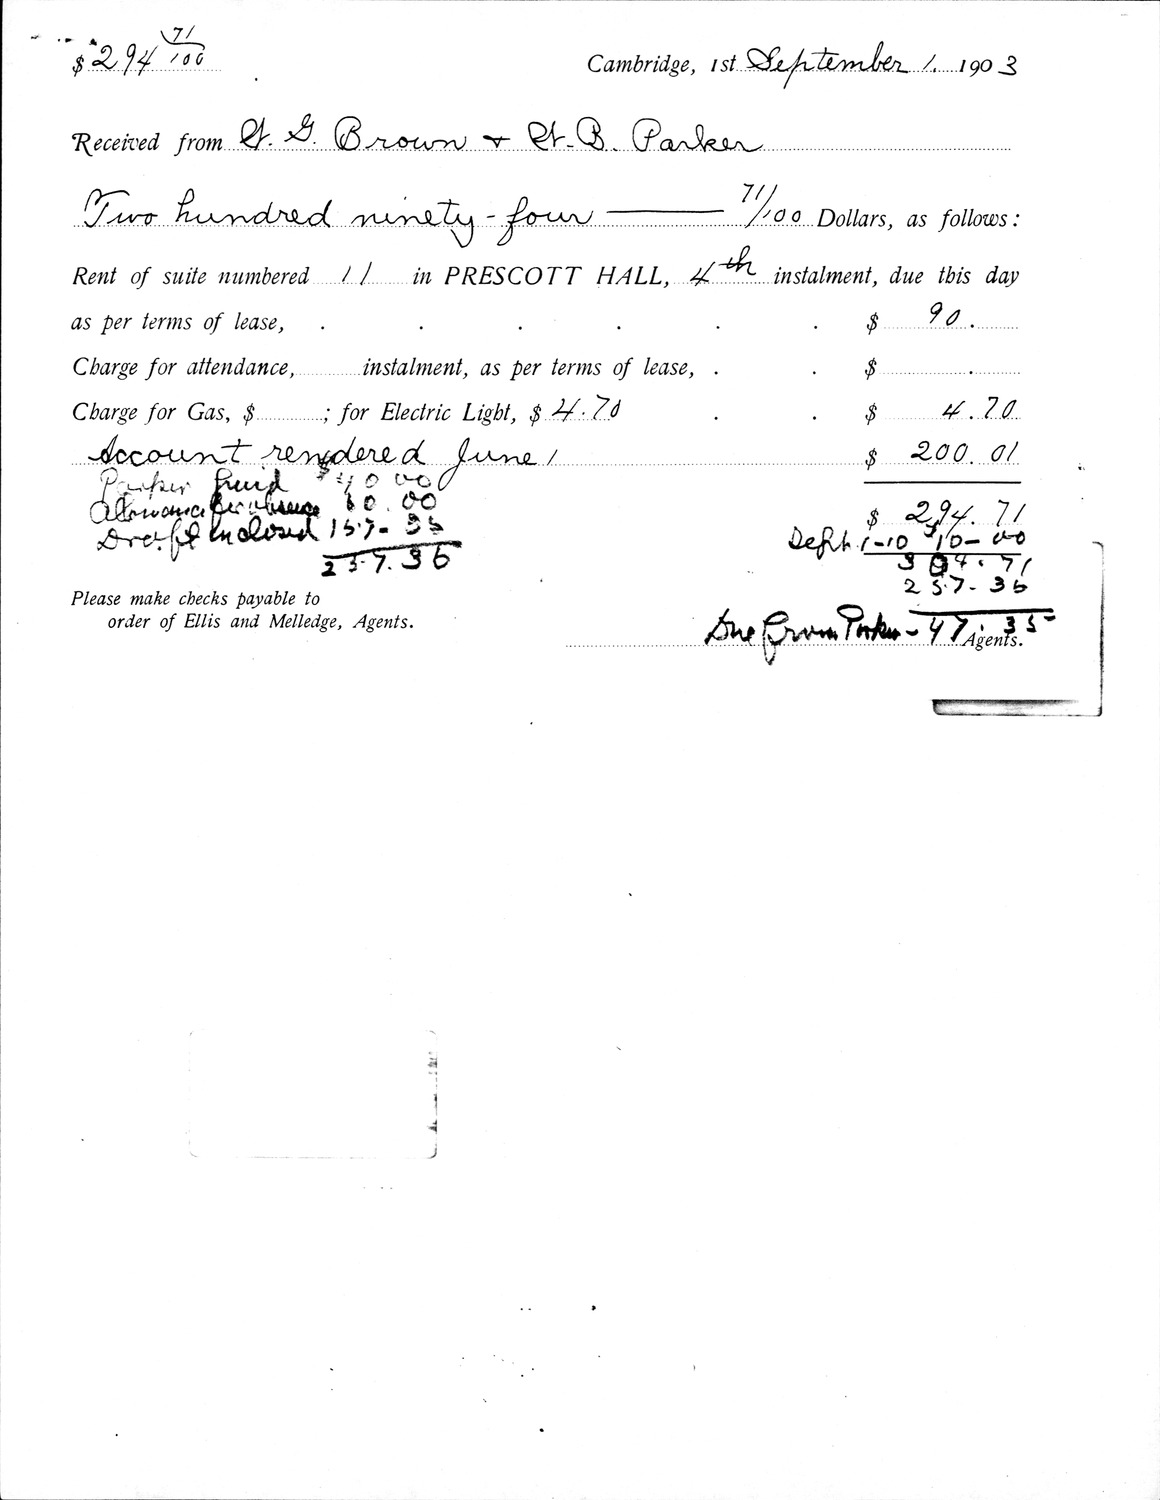 $ 294 71/100
Cambridge, 1st September 1. 1903
Received from H. G. Brown + H. B. Parker
Two hundred ninety-four — 71/100 Dollars, as follows:
Rent of suite numbered 11 in PRESCOTT HALL, 4th instalment, due this day
as per terms of lease, . . . . . . $ 90.
Charge for attendance, instalment, as per terms of lease, . . $ .
Charge for Gas, $ ; for Electric Light, $ 4.70 . . $ 4.70
Account rendered June 1 $ 200.01
Parker paid $40.00
Allowance for absence 60.00
$ 294.71
Draft Enclosed 157-36
Sept 1-10 $10-00
257.36
304.71
257-36
Please make checks payable to
order of Ellis and Melledge, Agents.
Due from Parker - 47.35
Agents.